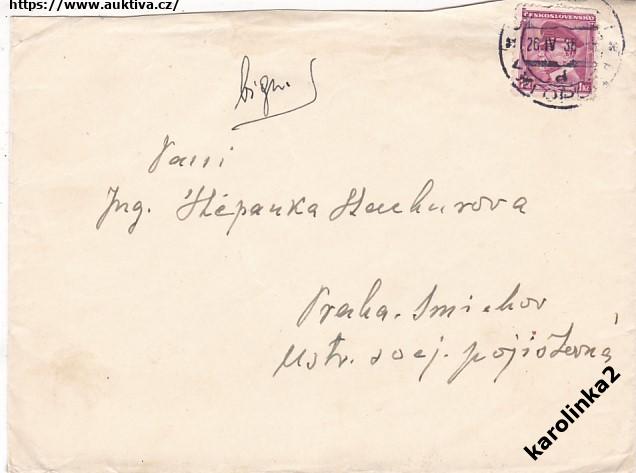 https://www.auktiva.cz/
ČESKOSLOVENSKO
26 IV 38
Paní
Ing. Štěpanka Stachurova
Praha. Smichov
Ústr. socj. pojišťovná
karolinka2